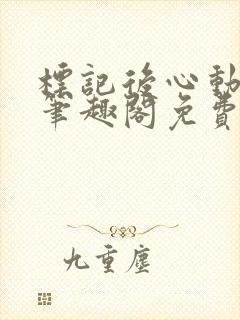 標記後心動
筆趣閣免費
九重塵